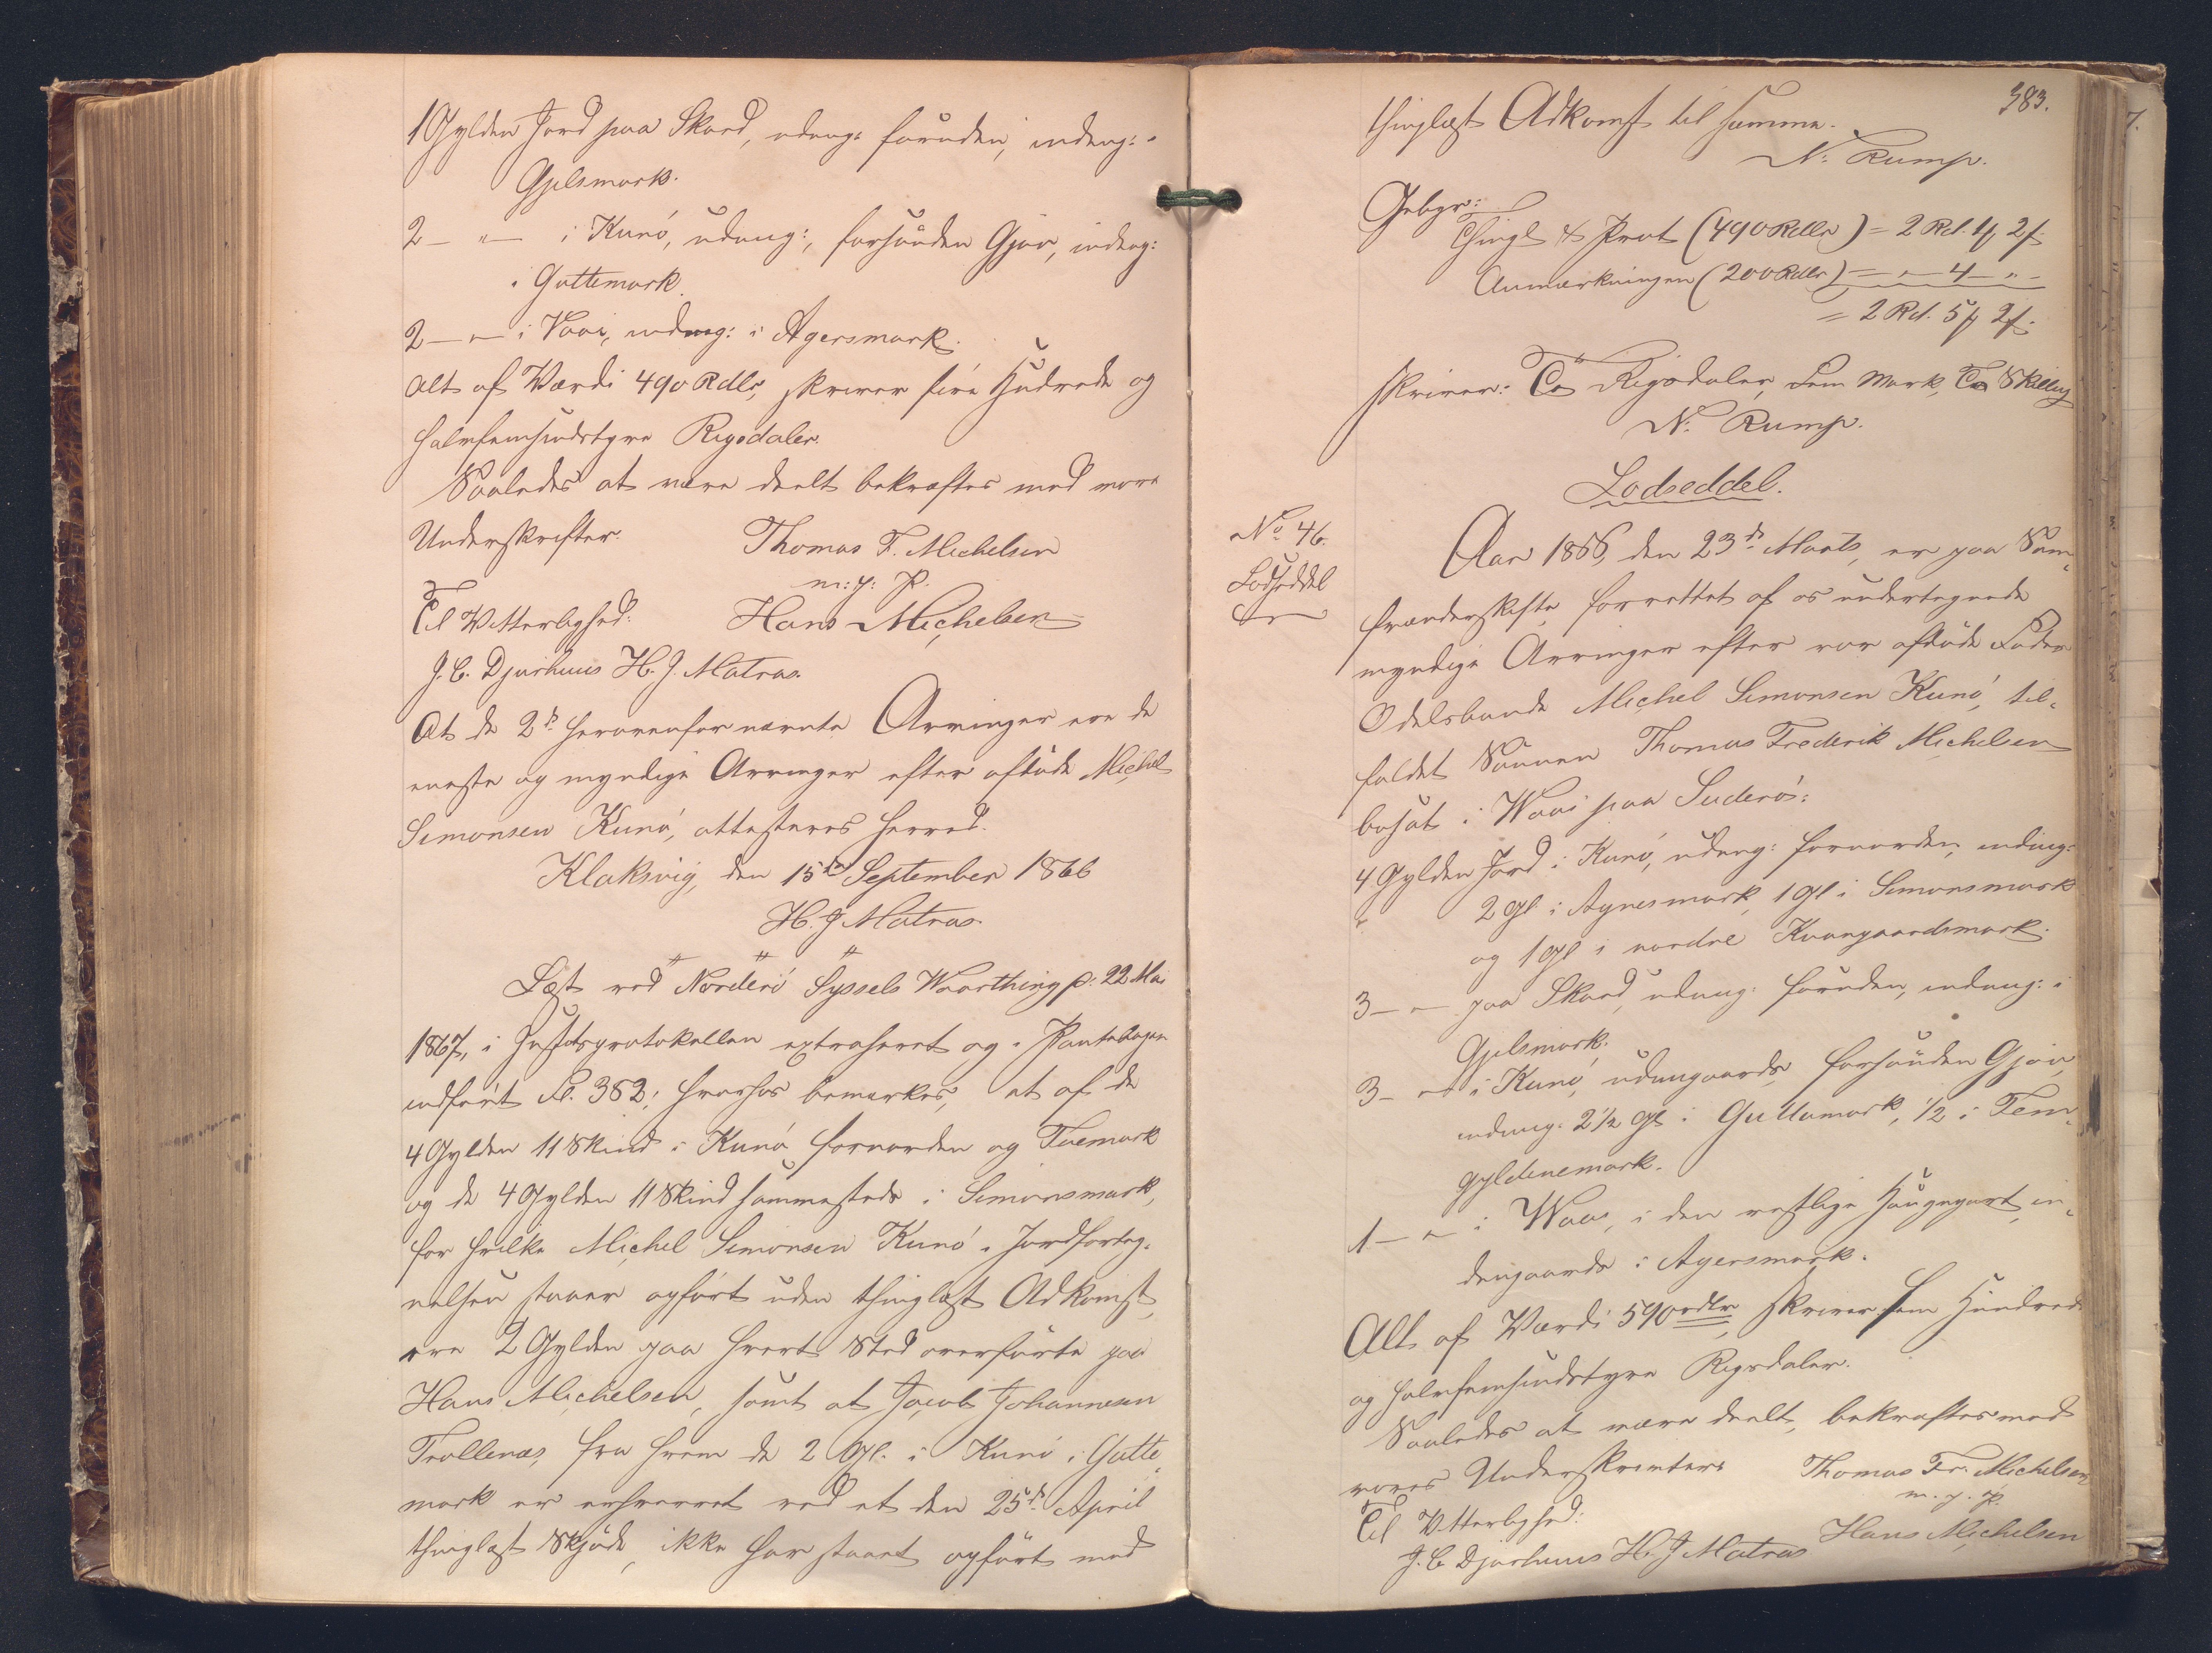 1 Gylden Jord paa Skard, udeng: sunden, indeng: i
Gjelsmark.
2 — " — i Kunö, udeng:, forsönden Gjov, indeng:
i Guttemark.
2 — " — i Vaai, indeng: i Agersmark.
Alt af Værdi 490 Rdlr, skriver fire Hundrede og
halvfemsindstyve Rigsdaler.
Saaledes at være deelt bekræftes med vore
Underskrifter.
Thomas F. Michelsen
m: f: P.
Til Vitterlighed:
Hans Michelsen
J. C. Djurhuus H. J. Matras.
At de 2de herovenfor nævnte Arvinger ere de
eneste og myndige Arvinger efter afdöde Michel
Simonsen Kunö, attesteres herved.
Klaksvig, den 15de September 1866
H. J. Matras.
Læst ved Norderö Syssels Vaarthing p: 22 Mai
1867, i Justitsprotokollen extraheret og i Pantebogen
indfört Fl. 382; hvorhos bemærkes, at af de
4 Gylden 11 Skind i Kunö fornorden og Tuemark
og de 4 Gylden 11 Skind sammesteds i Simonsmark,
for hvilke Michel Simonsen Kunö i Jordforteg-
nelsen staaer opfört uden thinglæst Adkomst,
ere 2 Gylden paa hvert Sted overförte paa
Hans Michelsen, samt at Jacob Johannesen
Trollenæs, fra hvem de 2 Gl. i Kunö i Gutte-
mark er erhvervet ved et den 25de April
thinglæst Skjöde, ikke har staaet opfört med
383.
thinglæst Adkomst til samme.
N. Rump.
Gebyr:
Thingl & Prot (490 Rdlr) = 2 Rd. 1 ₰ 2 ſ.
Anmærkningen (200 Rdlr) = " — 4 — " —
= 2 Rd. 5 ₰ 2 ſ.
skriver: To Rigsdaler, Fem Mark, To Skilling
N. Rump.
Lodseddel.
No 46.
Lodseddel
Aar 1866, den 23de Marts, er paa Sam-
frændeskifte, forrettet af os undertegnede
myndige Arvinger efter vor afdöde Fader
Odelsbonde Michel Simonsen Kunö, til-
faldet Sönnen Thomas Frederik Michelsen
bosat i Waai paa Suderö:
4 Gylden Jord i Kunö, udeng: fornorden, indeng:
2 Gl i Agnesmark, 1 Gl i Simonsmark
og 1 Gl i nordre Kvangaardsmark.
3 — " — paa Skard, udeng: sunden, indeng: i
Gjelsmark.
3 — " — i Kunö, udengaards forsönden Gjov,
indeng: 2½ Gl i Guttamark, ½ i Fem-
gyldenemark.
1 — " — i Waai, i den vestlige Haugepart, in-
dengaards i Agersmark.
Alt af Værdi 590 rdlr, skriver fem Hundrede
og halvfemsindstyve Rigsdaler.
Saaledes at være deelt, bekræftes med
vores Underskrivter.
Thomas Fr. Michelsen
m. f. P.
Til Vitterlighed:
Hans Michelsen
J. C Djurhuus H. J Matras